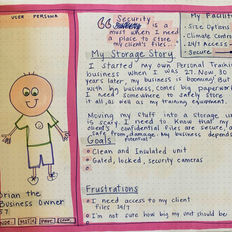 USER PERSONA
Security is a
must when I need
a place to store
my client's files.
My Storage Story
I started my own Personal Training
business when I was 27. Now 30
years later, my business is booming! But
with big business, comes big paperwork
I need somewhere to safely store
it all, as well as my training equipment.
Moving my stuff into a storage unit
is scary. I need to know that my
client's confidential files are secure,
safe from damage, my business depends
Goals
Clean and Insulated unit
Gated, locked, security cameras
Frustrations
I need access to my client
files 24/7
I'm not sure how big my unit should be
My Facilit
Size Options
Climate Contro
24/7 Access
Securit
rian the
Business Owner
57